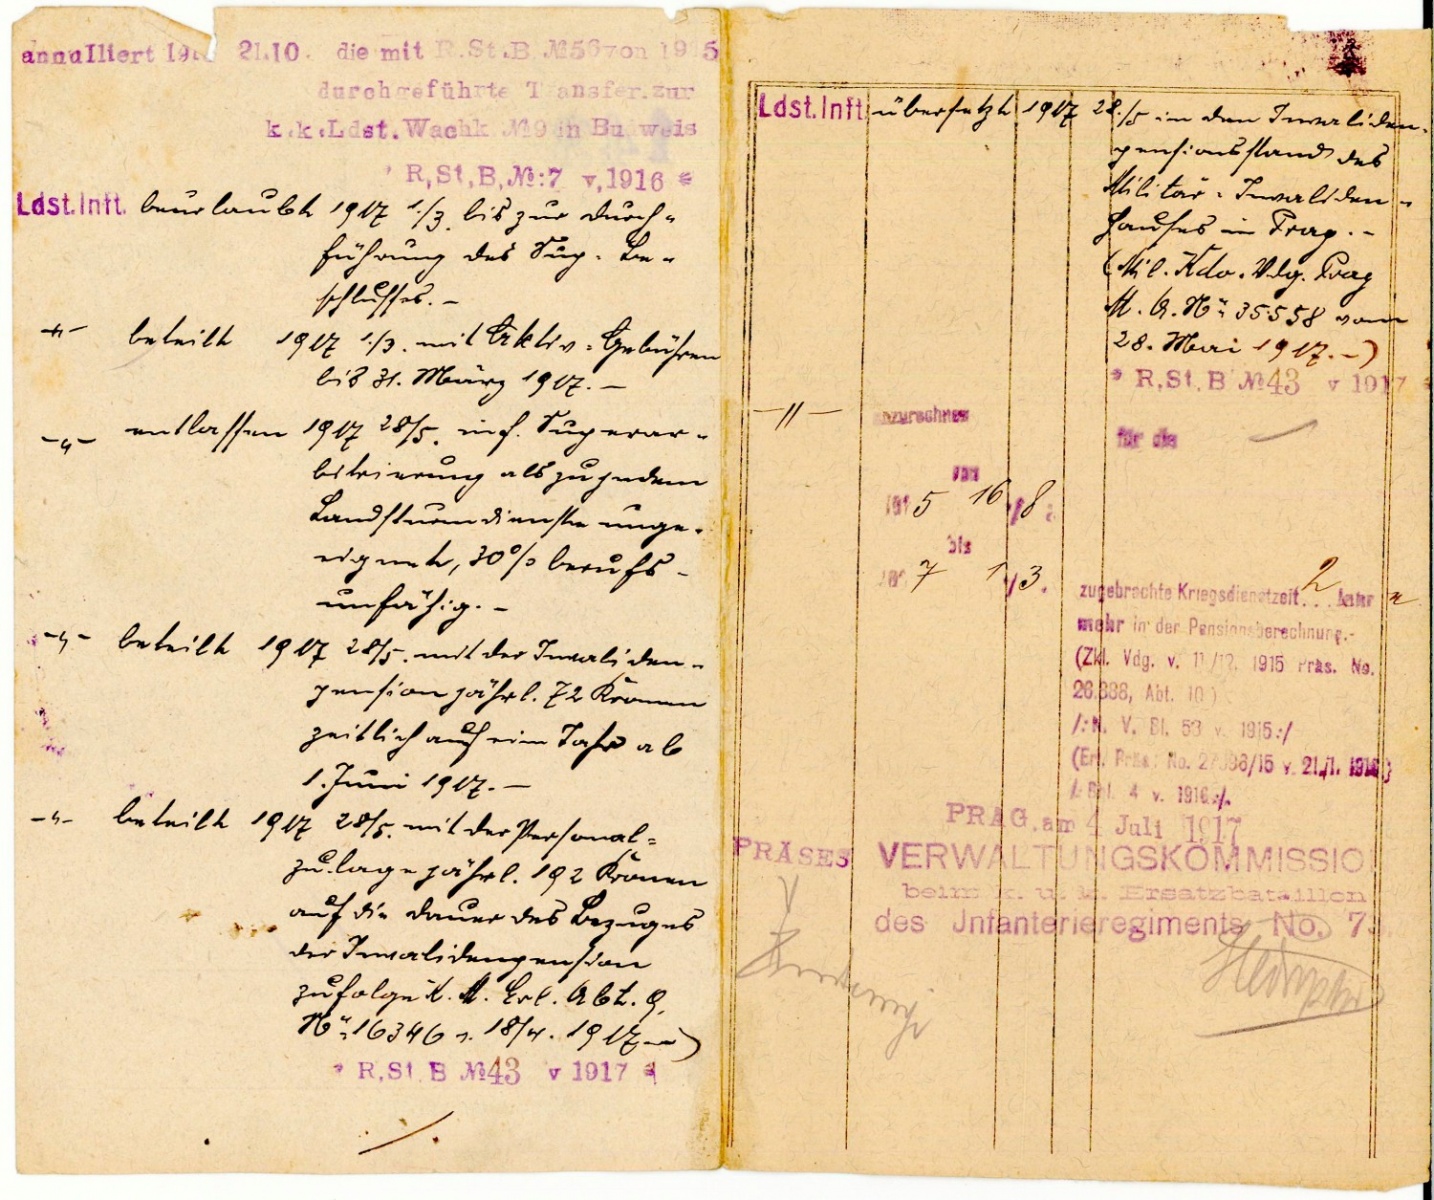 annulliert 21.10. die mit R.St.B. №56 von 1915
durchgeführte Transfer. zur
k.k. Ldst. Wachk. №9 in Budweis
R,St,B,№:7 v,1916 *
Ldst.Inft. beurlaubt 1917 1./3. bis zur Durch-
führung des Sup. Be-
schlusses. –
–"– beteilt 1917 1./3. mit Aktiv-Gebühren
bis 31. März 1917. –
–"– entlassen 1917 28/5. inf. Superar-
bitrierung als zu jedem
Landsturmdienste unge-
eignet, 30% berufs-
unfähig. –
–"– beteilt 1917 28/5. mit der Invaliden-
pension jährl. 72 Kronen
zeitlich auf ein Jahr ab
1. Juni 1917. –
–"– beteilt 1917 28/5. mit der Personal-
zulage jährl. 192 Kronen
auf die Dauer des Bezuges
der Invalidenpension
zufolge K. M. Erl. Abt. 9,
Nº 16346 v. 18/4. 1917. –)
* R,St B №43 v 1917 *
Ldst.Inft. übersetzt 1917 28./5 in den Invaliden-
pensionsstand des
Militär-Invaliden-
hauses in Prag. –
(Mil. Kdo. Vdg. Prag
M. A. Nº 35558 vom
28. Mai 1917. –)
* R,St,B №43 v 1917 *
–"– anzurechnen für die
von
1915 16/8.
bis
1917 1/3.
zugebrachte Kriegsdienstzeit 2 Jahre
mehr in der Pensionsberechnung.-
(Zkl. Vdg. v. 11/12. 1915 Präs. No.
26.888, Abt. 10)
/:N. V. Bl. 53 v. 1915:/
(Erl. Präs. No. v. 21./1. 1916)
/: Bbl. 4 v. 1916:/.
PRAG, am 4 Juli 1917
PRÄSES VERWALTUNGSKOMMISSIO
beim k. u. k. Ersatzbataillon
des Jnfanterieregiments No. 73.